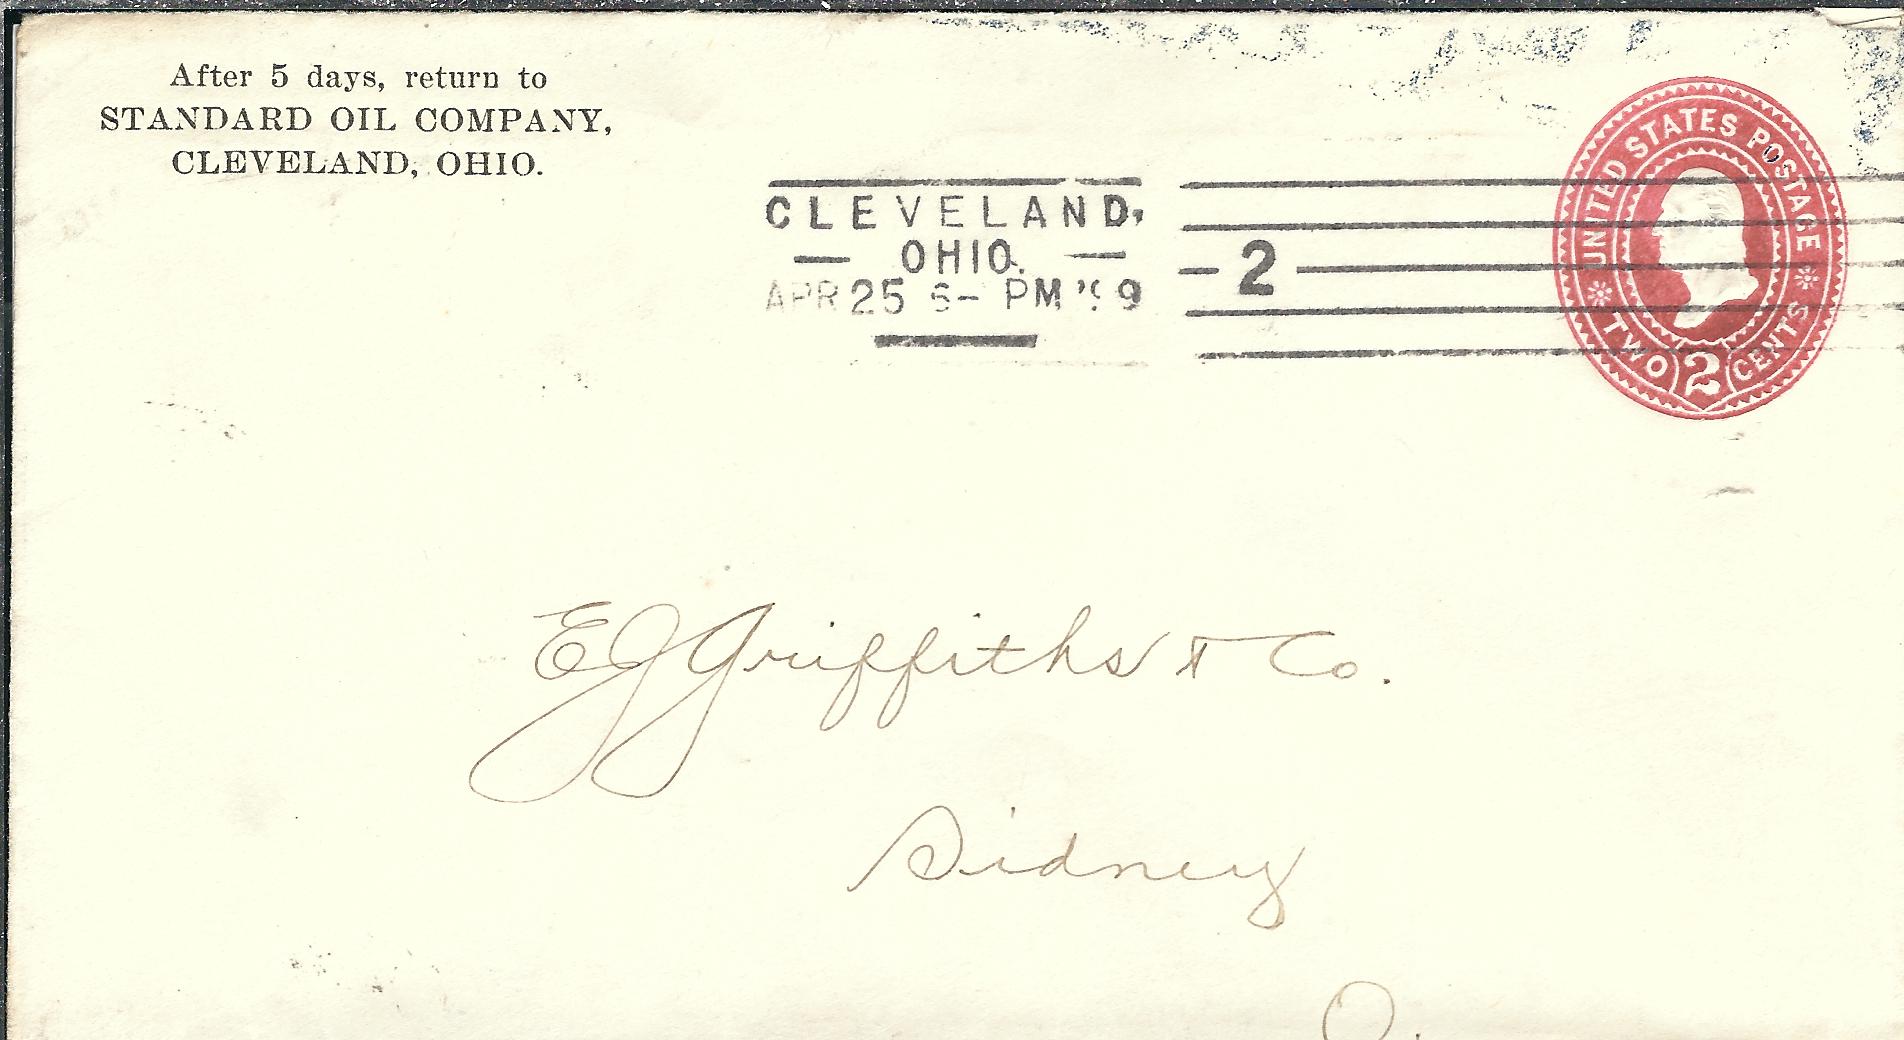 After 5 days, return to
STANDARD OIL COMPANY,
CLEVELAND, OHIO.
CLEVELAND,
— OHIO. —
APR 25 6- PM '99
- 2
UNITED STATES POSTAGE
TWO 2 CENTS
E J Griffiths & Co.
Sidney
O.